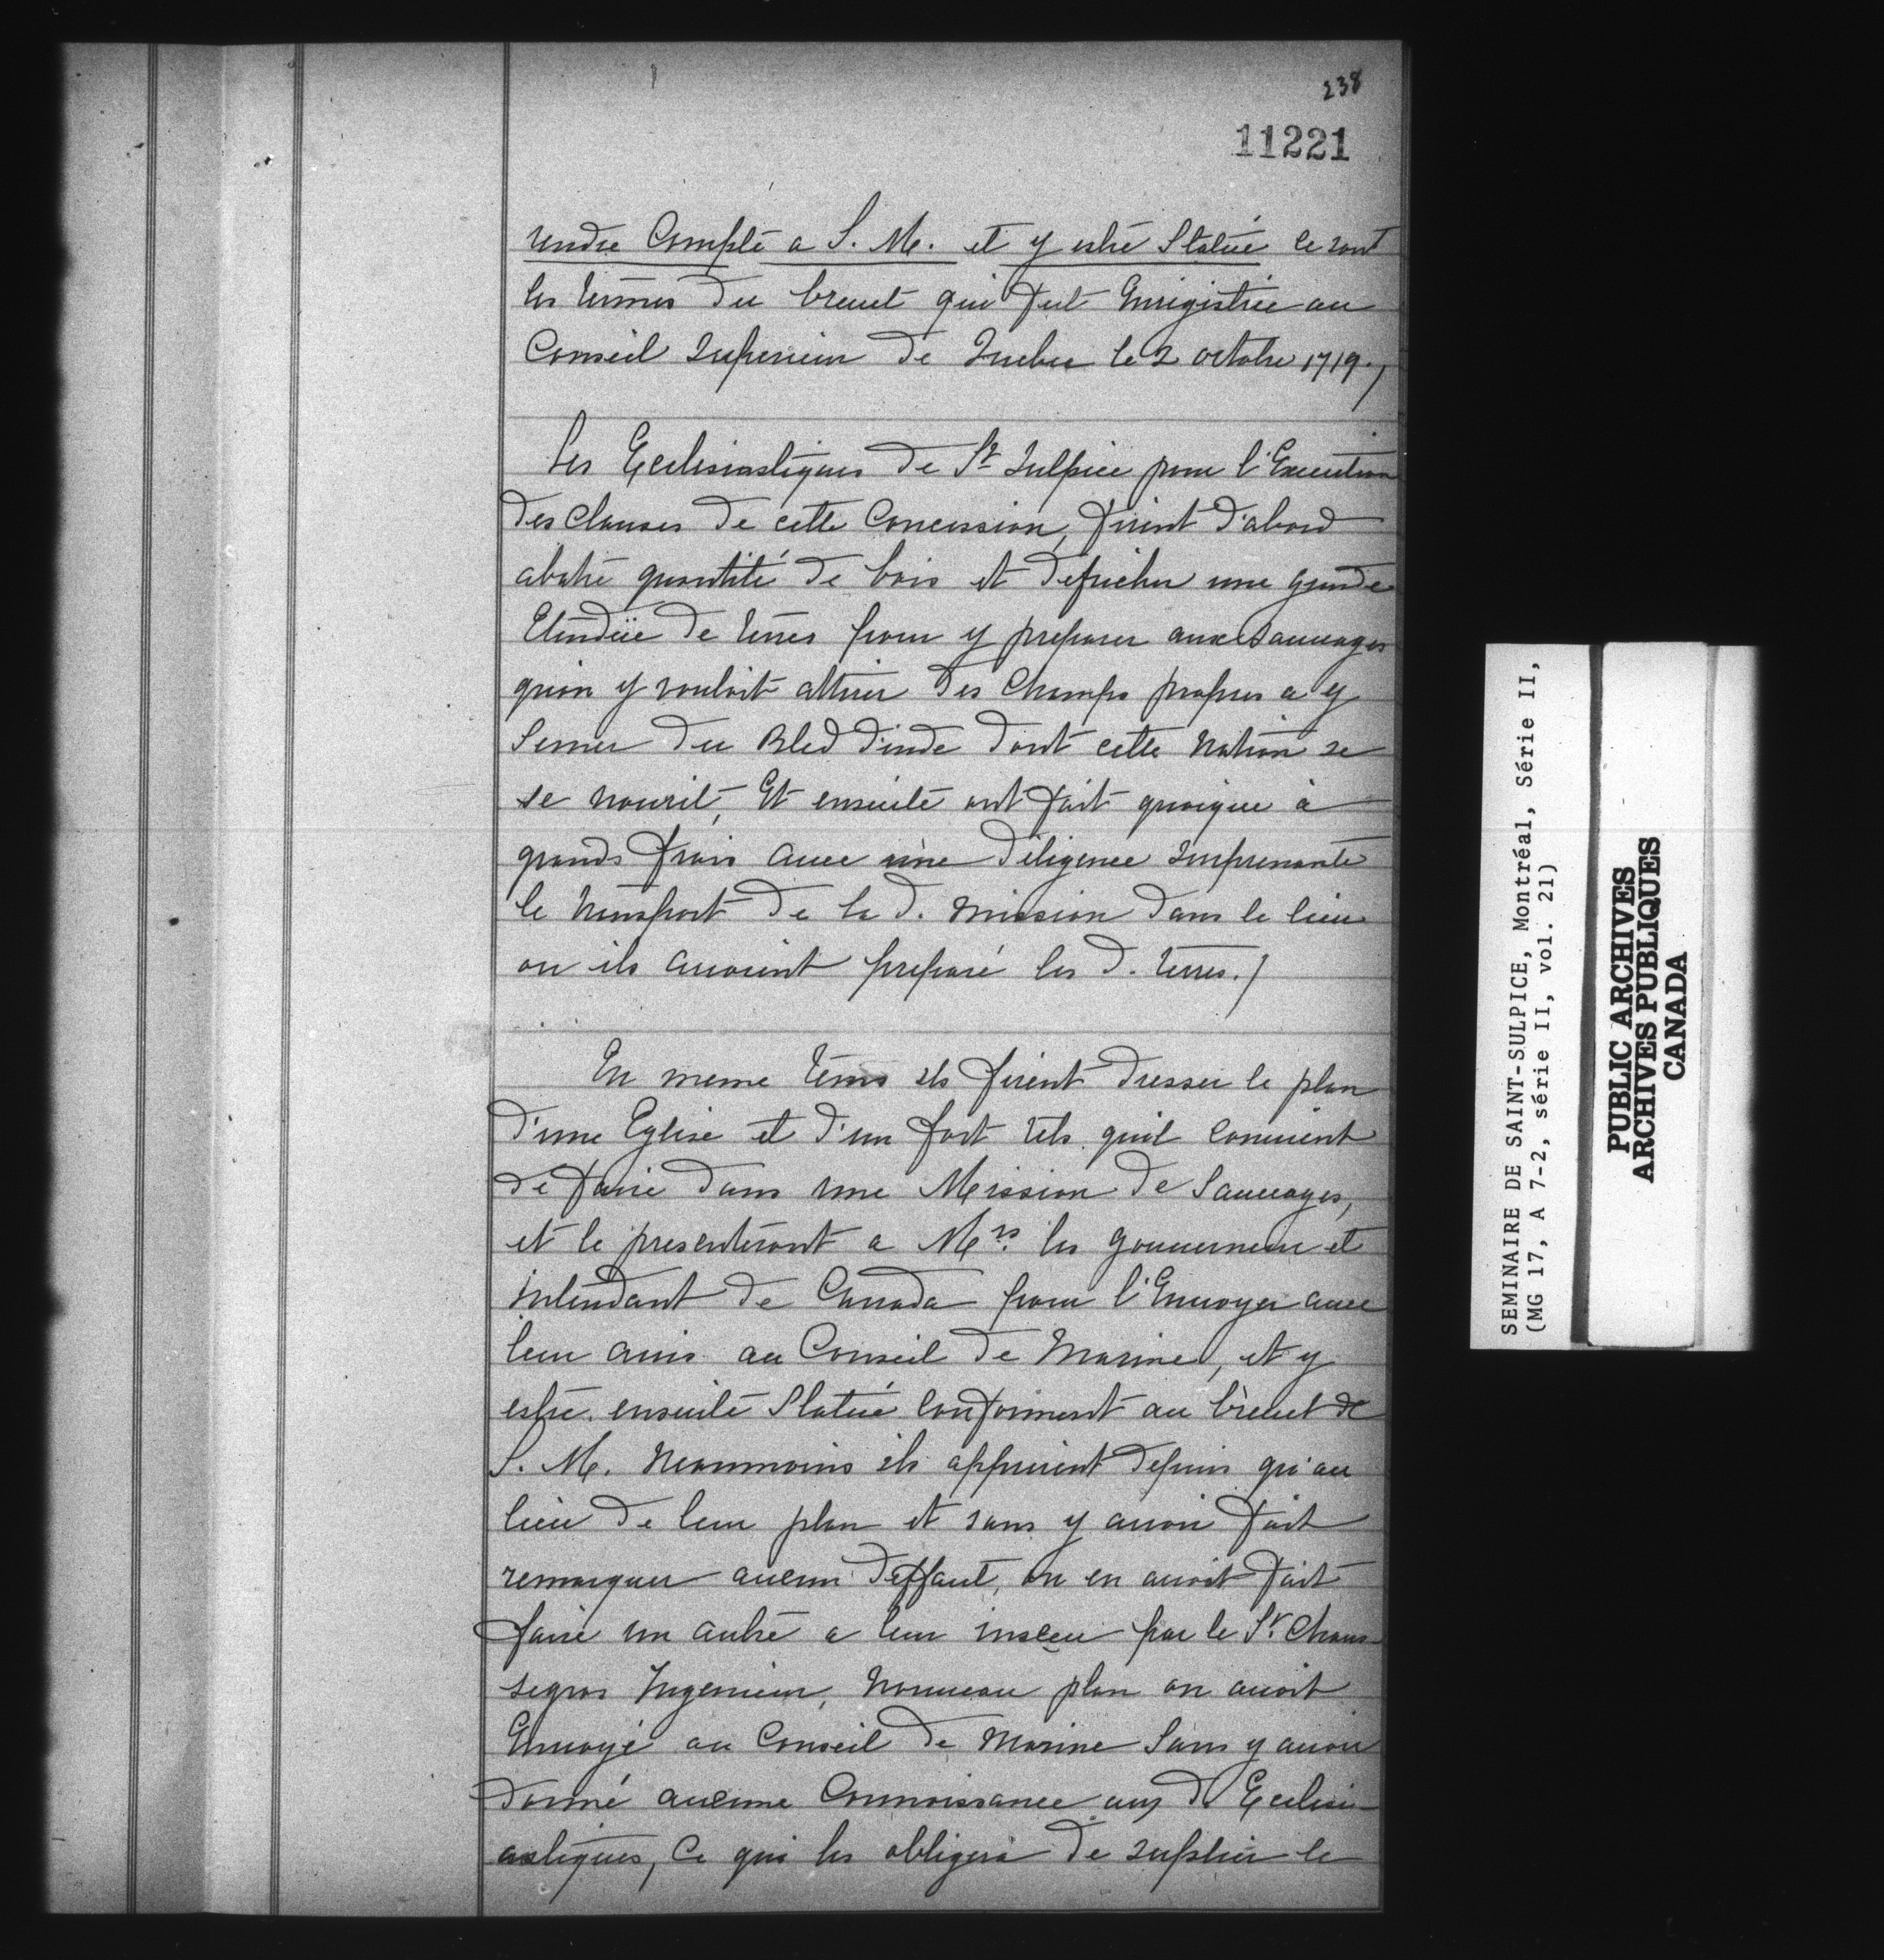 238
11221
rendre Compte a S. M. et y estre Statué ce sont
les termes du brevet qui fut Enregistrée au
Conseil Superieur de Quebec le 2 octobre 1719./
Les Ecclesiastiques de St Sulpice pour l'Execution
des clauses de cette Concession, firent d'abord
abatre quantité de bois et defricher une grande
Etendüe de terres pour y preparer aux sauvages
qu'on y vouloit attirer des Champs propres a y
Semer du Bled d'inde dont cette Nation se
se nourit, Et ensuite ont fait quoique à
grands frais avec une diligence surprenante
le transport de la d. mission dans le lieu
ou ils avoient preparé les d. terres./
En meme tems ils firent dresser le plan
d'une Eglise et d'un fort tels qu'il convient
de faire dans une Mission de Sauvages,
et le presenteront a Mrs. les gouverneur et
intendant de Canada pour l'Envoyer avec
leur avis au Conseil de Marine, et y
estre ensuite Statué conforment au brevet de
S. M. Neanmoins ils apprirent depuis qu'au
lieu de leur plan et sans y avoir fait
remarquer aucun deffaut, on en avoit fait
faire un autre a leur insceu par le Sr. Chaus-
segros Ingenieur, Nouveau plan on avoit
Envoyé au Conseil de Marine Sans y avoir
donné aucune Connoissance aux d. Ecclesi-
astiques, Ce qui les obligera de suplier le
SEMINAIRE DE SAINT-SULPICE, Montréal, Série II,
(MG 17, A 7-2, série II, vol. 21)
PUBLIC ARCHIVES
ARCHIVES PUBLIQUES
CANADA